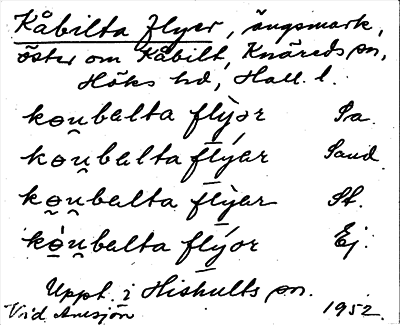 Kåbilta flyer, ängsmark,
öster om Kåbilt, Knäreds sn,
Höks hd, Hall. l.
kɵu̯balta flỳər Sa.
kɵu̯balta flýar Sand
kɵu̯balta flỳar St.
kɵ̀u̯balta flýor Ej.
Uppt. i Hishults sn.
Vid Anesjön 1952.